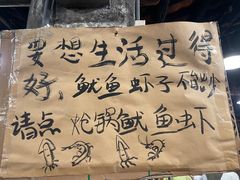 要想生活过得
好,鱿鱼虾子不能少
请点 炝锅鱿鱼虾